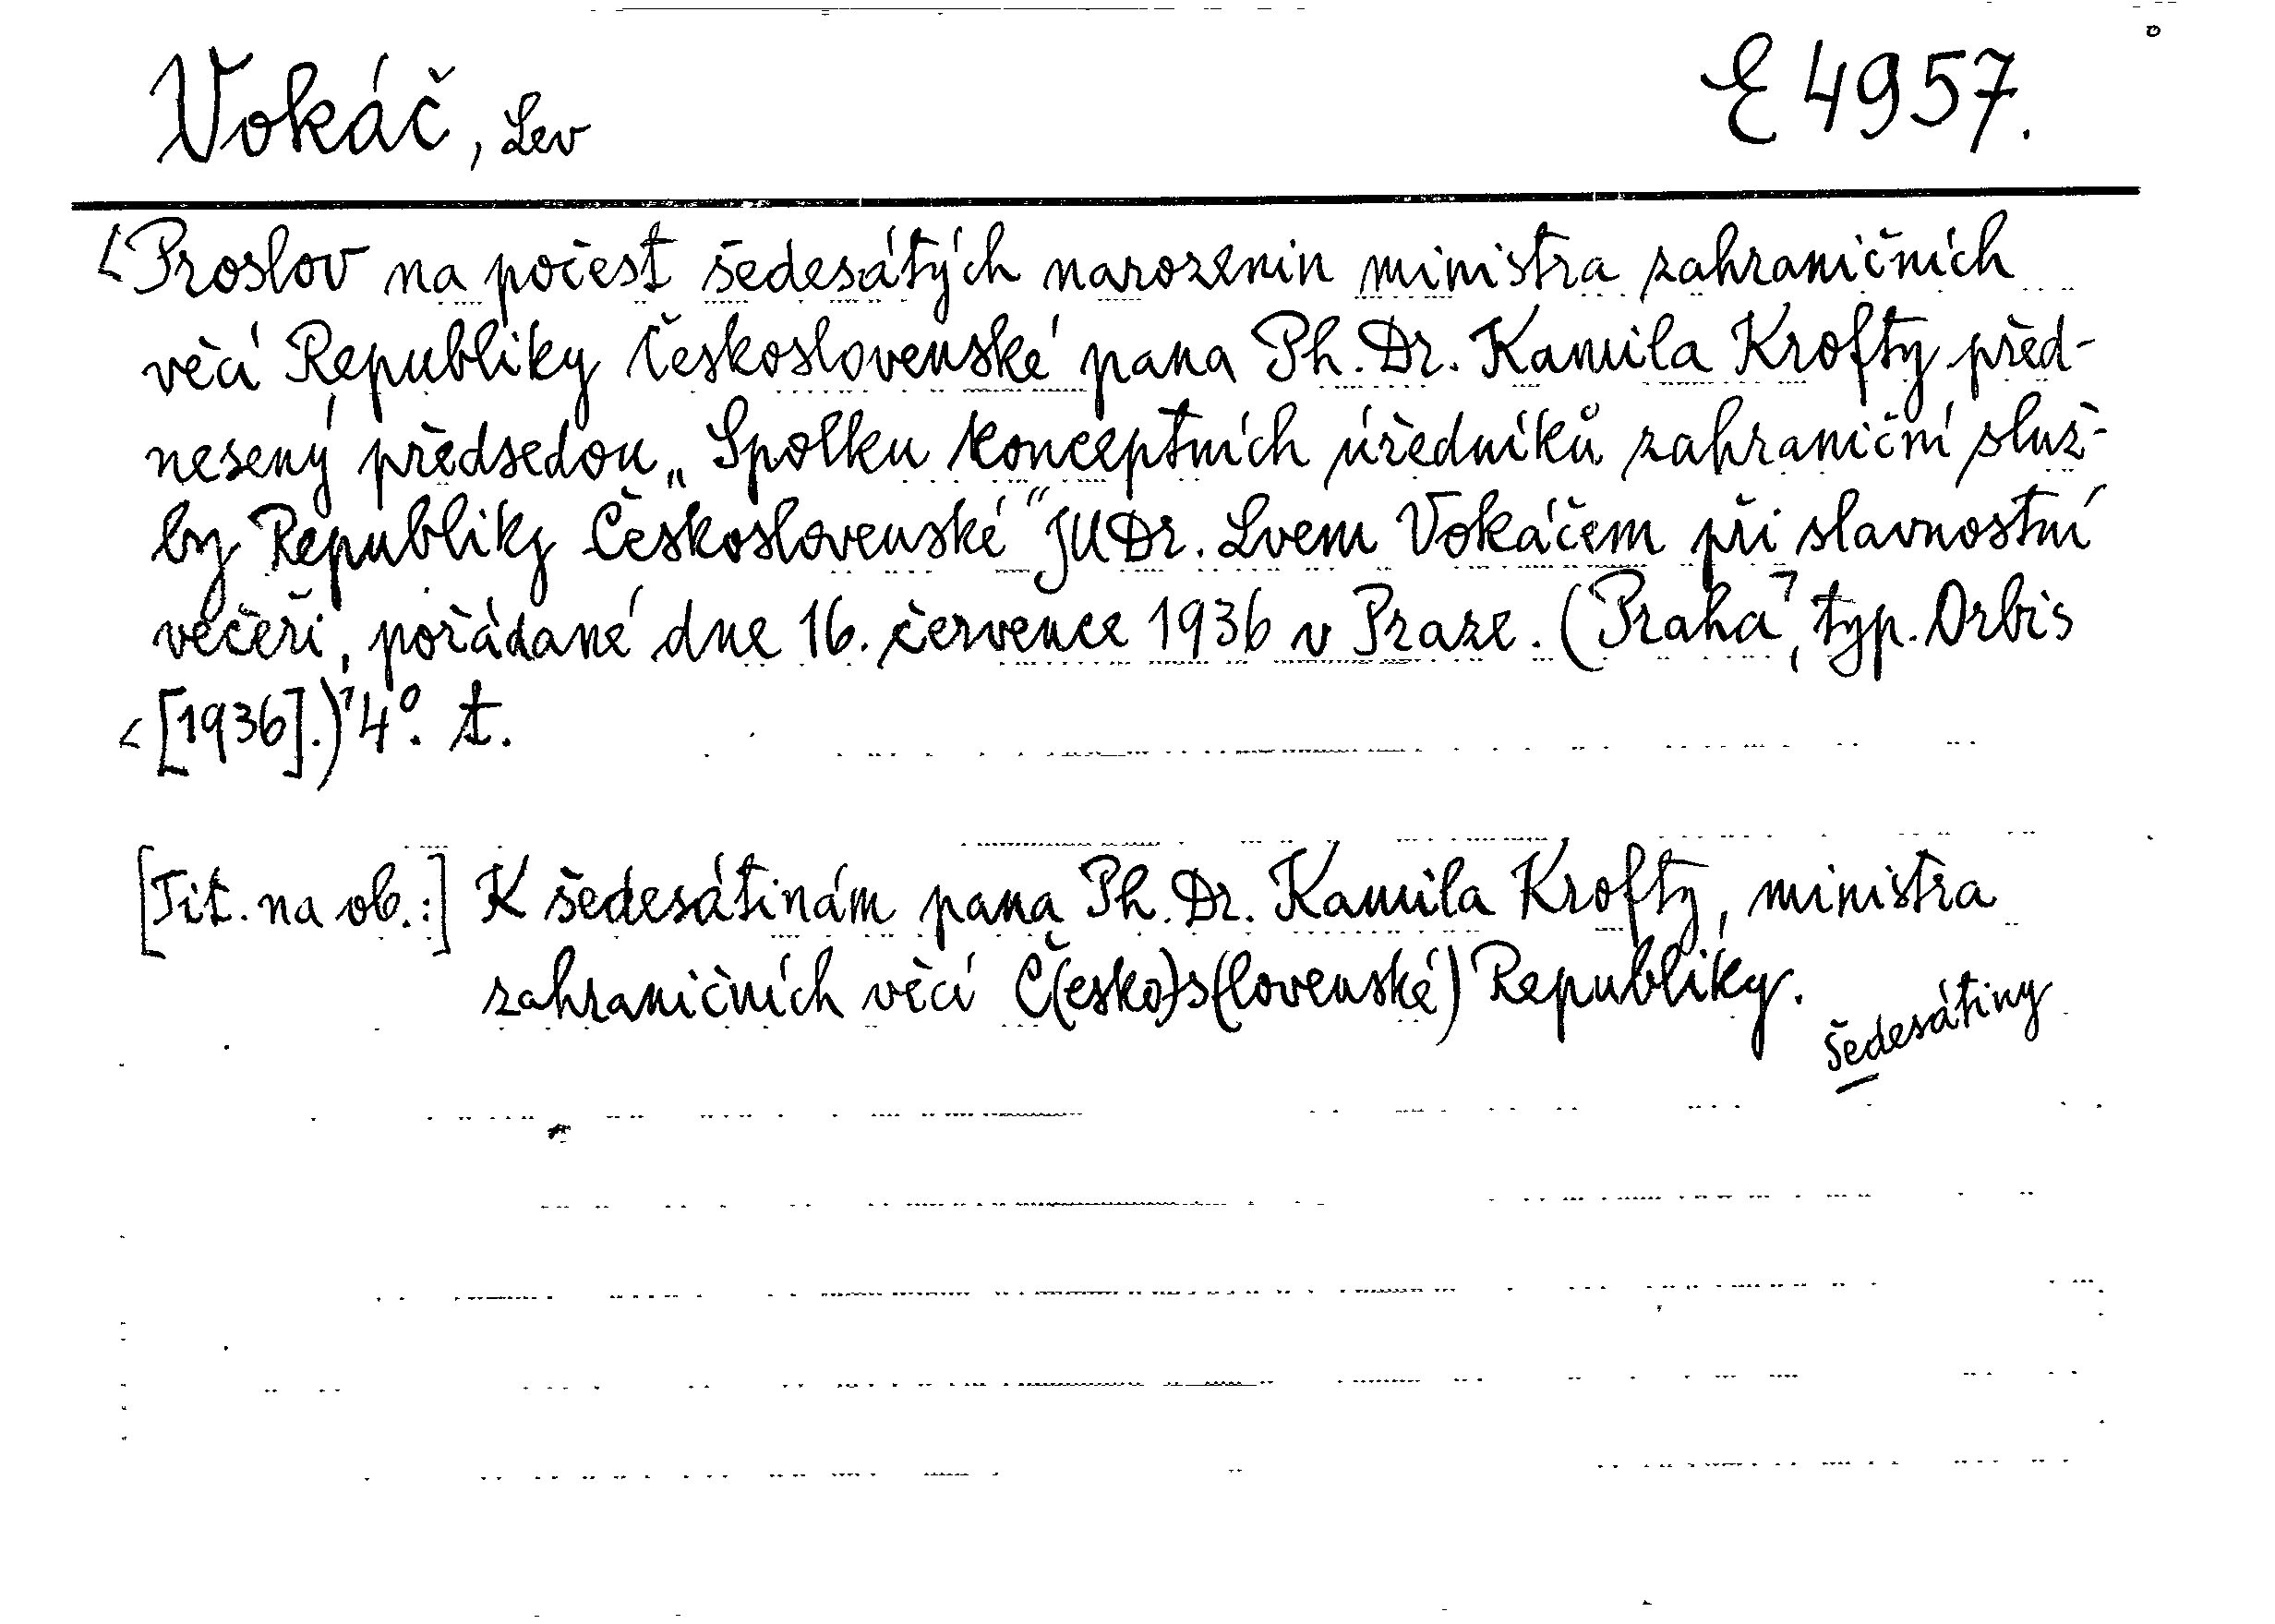 Vokáč, Lev
E 4957.
Proslov na počest šedesátých narozenin ministra zahraničních
věcí Republiky Československé pana Ph. Dr. Kamila Krofty před-
nesený předsedou „Spolku konceptních úředníků zahraniční služ-
by Republiky Československé" JUDr. Lvem Vokáčem při slavnostní
večeři, pořádané dne 16. července 1936 v Praze. (Praha, typ. Orbis
[1936].) 4°. t.
[Tit. na ob.:] K šedesátinám pana Ph. Dr. Kamila Krofty, ministra
zahraničních věcí Č(esko)s(lovenské) Republiky.
šedesátiny